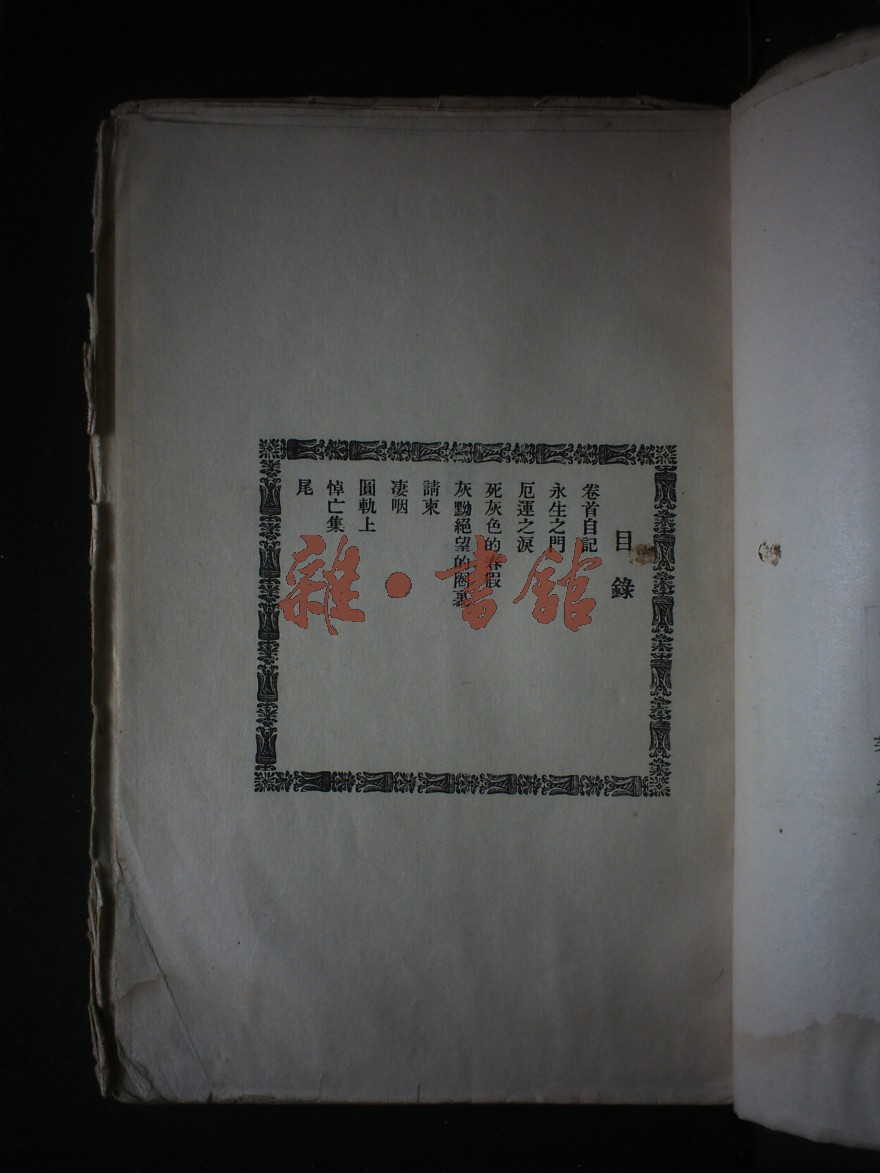 目錄
卷首自記
永生之門
厄運之淚
死灰色的春假
灰黝絕望的圈裏
請柬
淒咽
圓軌上
悼亡集
尾
雜·書館